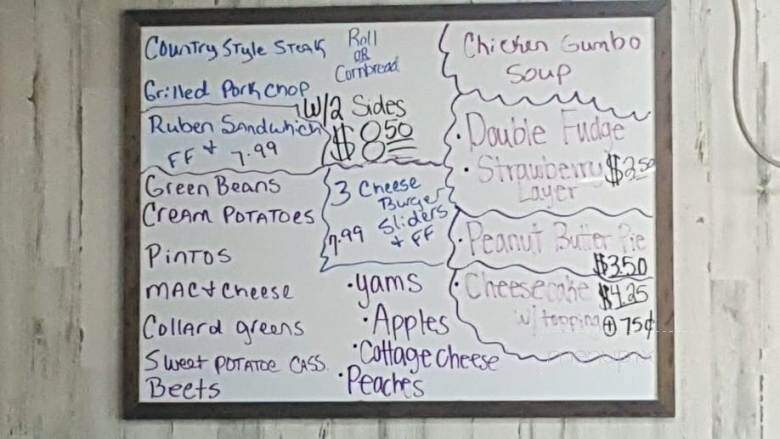 Country Style Steak
Grilled Pork Chop
Roll
OR
Cornbread
W/2 Sides
$8.50
Ruben Sandwhich
FF + 7.99
3 Cheese
Burger
Sliders
7.99 + FF
Green Beans
Cream Potatoes
Pintos
Mac + Cheese
Collard greens
Sweet Potatoe Cass.
Beets
•yams
•Apples
•Cottage cheese
•Peaches
Chicken Gumbo
Soup
•Double Fudge
•Strawberry $2.50
Layer
•Peanut Butter Pie
$3.50
•Cheesecake $4.25
w/ topping + 75¢